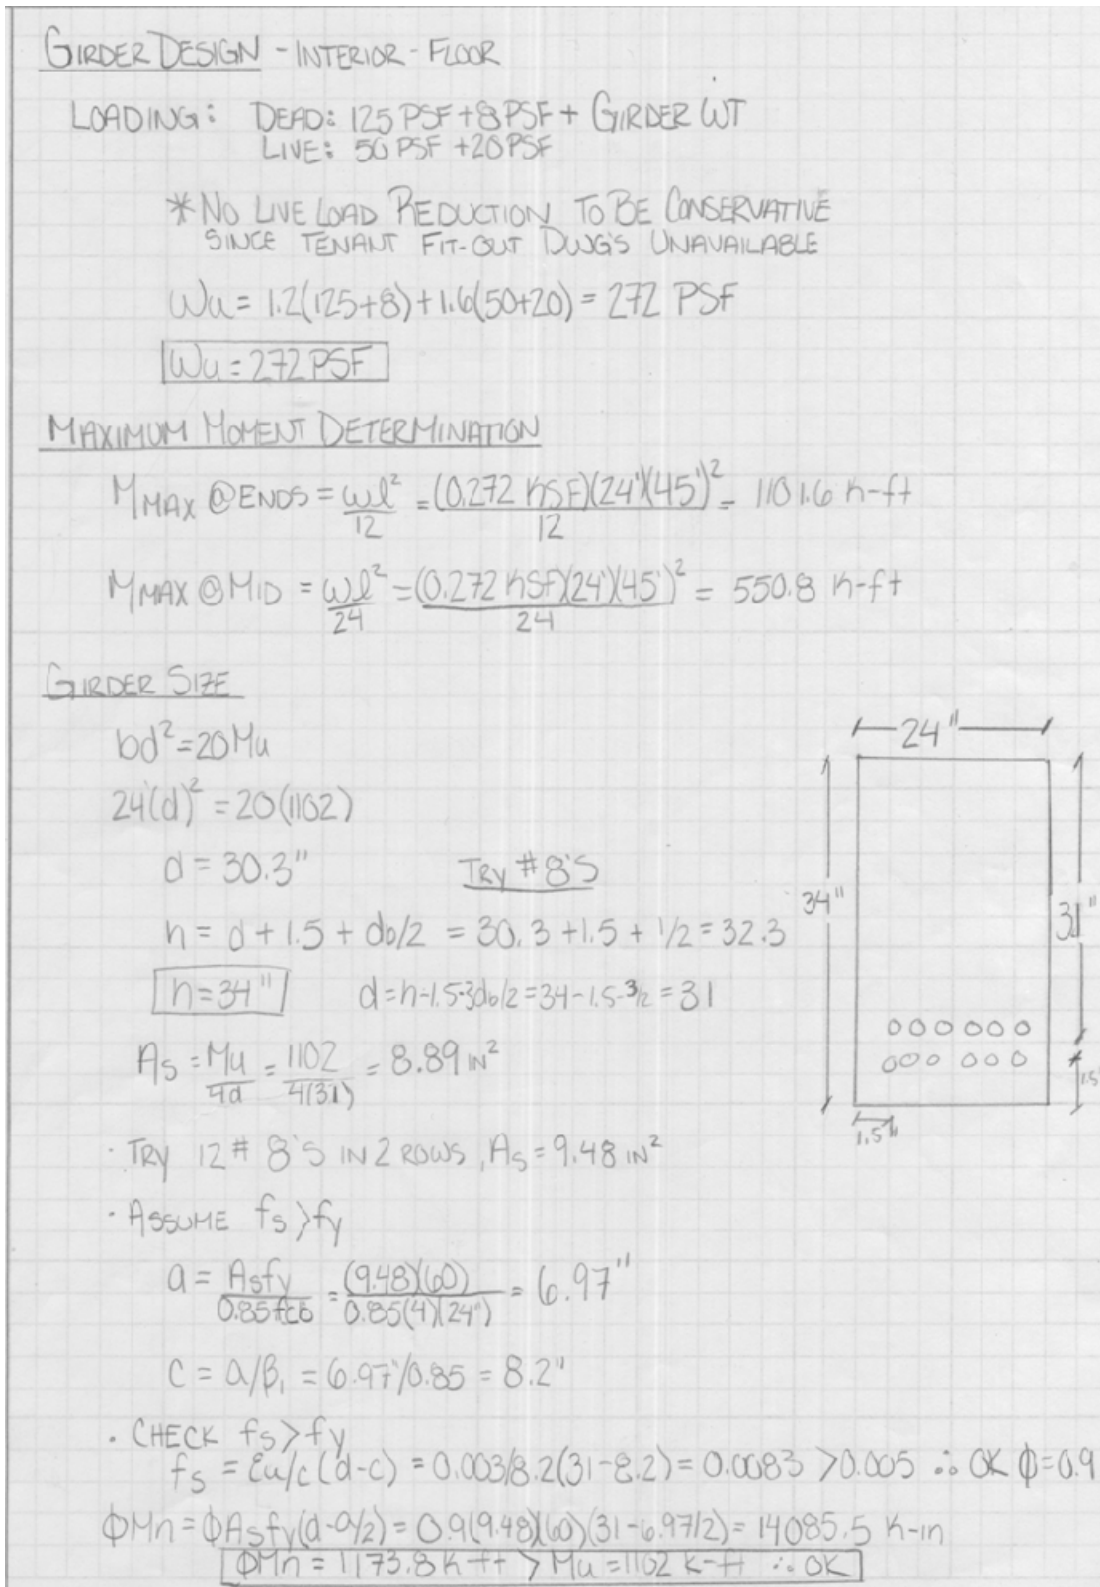 GIRDER DESIGN - INTERIOR - FLOOR
LOADING: DEAD: 125 PSF + 8 PSF + GIRDER WT
LIVE: 50 PSF + 20 PSF
* NO LIVE LOAD REDUCTION TO BE CONSERVATIVE
SINCE TENANT FIT-OUT DWG'S UNAVAILABLE
Wu = 1.2(125+8) + 1.6(50+20) = 272 PSF
Wu = 272 PSF
MAXIMUM MOMENT DETERMINATION
M MAX @ ENDS = wl²/12 = (0.272 KSF)(24')(45')²/12 = 1101.6 K-ft
M MAX @ MID = wl²/24 = (0.272 KSF)(24')(45')²/24 = 550.8 K-ft
GIRDER SIZE
bd² = 20Mu
24(d)² = 20(1102)
d = 30.3"
TRY #8'S
h = d + 1.5 + db/2 = 30.3 + 1.5 + 1/2 = 32.3
h = 34"
d = h-1.5-3db/2 = 34-1.5-3/2 = 31
As = Mu/4d = 1102/4(31) = 8.89 IN²
· TRY 12 # 8'S IN 2 ROWS, As = 9.48 IN²
· ASSUME fs > fy
a = Asfy/0.85fcb = (9.48)(60)/0.85(4)(24") = 6.97"
c = a/β₁ = 6.97"/0.85 = 8.2"
· CHECK fs > fy
fs = εu/c (d-c) = 0.003/8.2(31-8.2) = 0.0083 > 0.005 ∴ OK ϕ=0.9
ϕMn = ϕAsfy(d-a/2) = 0.9(9.48)(60)(31-6.97/2) = 14085.5 K-in
ϕMn = 1173.8 K-ft > Mu = 1102 K-ft ∴ OK
24"
34"
31"
1.5"
1.5"